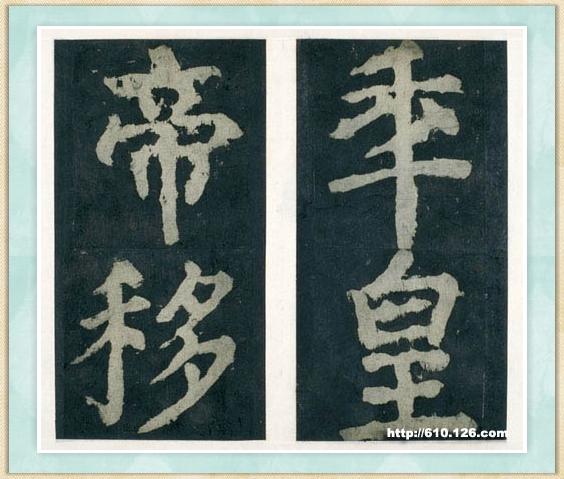 年皇
帝移
http://610.126.com